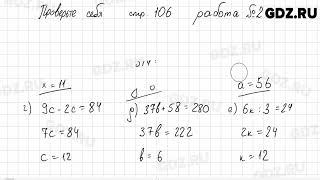 GDZ.RU
Проверьте себя стр. 106 работа №2
x = 11
a = 56
г) 9c - 2c = 84 д) 37в + 58 = 280 е) 6к : 3 = 24
7c = 84 37в = 222 2к = 24
c = 12 в = 6 к = 12